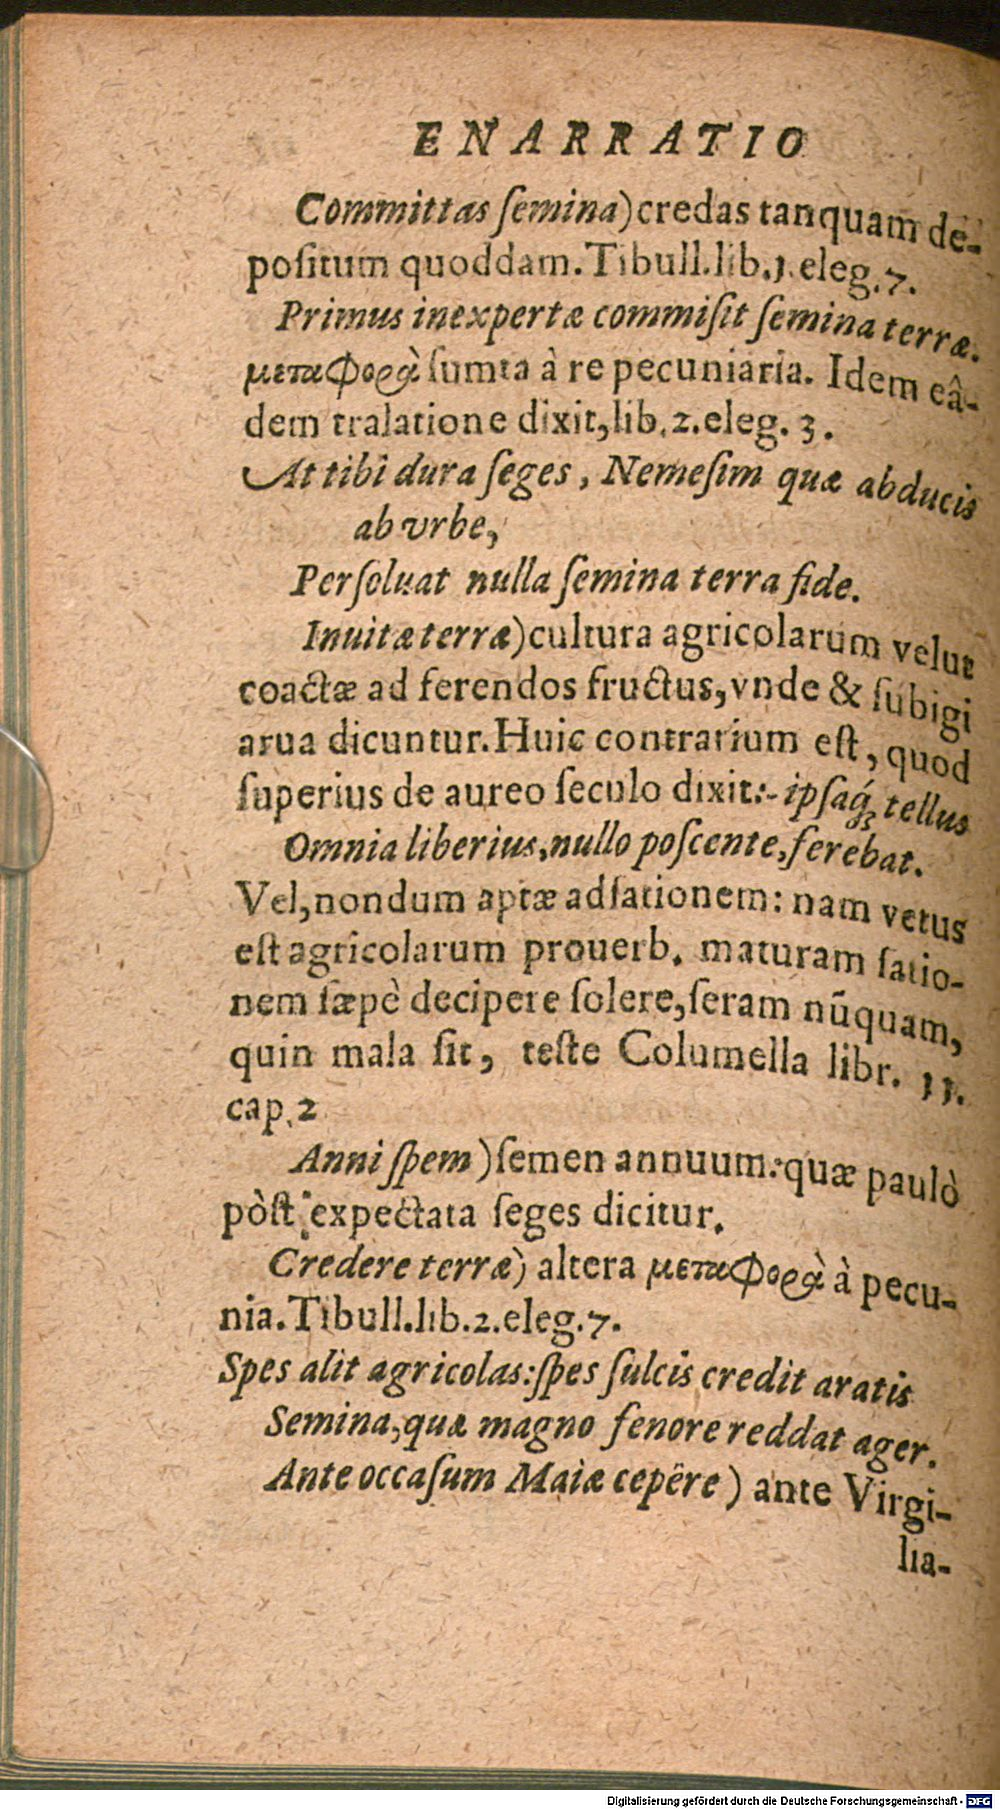 ENARRATIO
Committas ſemina) credas tanquam de-
poſitum quoddam. Tibull. lib. 1. eleg. 7.
Primus inexpertæ commiſit ſemina terræ.
μεταφορὰ ſumta à re pecuniaria. Idem eâ-
dem tralatione dixit, lib. 2. eleg. 3.
At tibi dura ſeges, Nemeſim quæ abducis
ab vrbe,
Perſoluat nulla ſemina terra fide.
Inuitæ terræ) cultura agricolarum velut
coactæ ad ferendos fructus, vnde & ſubigi
arua dicuntur. Huic contrarium eſt, quod
ſuperius de aureo ſeculo dixit:- ipſaq́; tellus
Omnia liberius, nullo poſcente, ferebat.
Vel, nondum aptæ ad ſationem: nam vetus
eſt agricolarum prouerb. maturam ſatio-
nem ſæpè decipere ſolere, ſeram nūquam,
quin mala ſit, teſte Columella libr. 11.
cap. 2
Anni ſpem) ſemen annuum: quæ paulò
pòſt expectata ſeges dicitur.
Credere terræ) altera μεταφορὰ à pecu-
nia. Tibull. lib. 2. eleg. 7.
Spes alit agricolas: ſpes ſulcis credit aratis
Semina, quæ magno fenore reddat ager.
Ante occaſum Maiæ cepêre) ante Virgi-
lia-
Digitalisierung gefördert durch die Deutsche Forschungsgemeinschaft - DFG